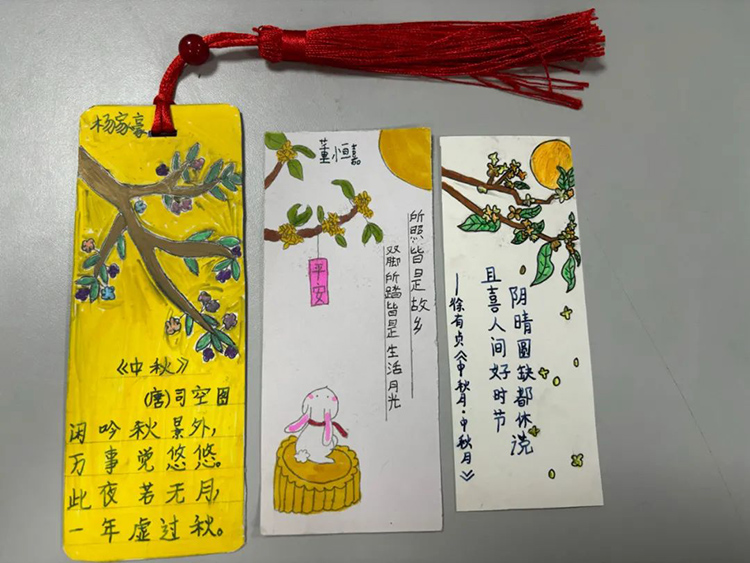 杨家豪
《中秋》
(唐)司空图
闲吟秋景外,
万事觉悠悠。
此夜若无月,
一年虚过秋。
董恒嘉
平安
所照皆是故乡
双脚所踏皆是生活月光
阴晴圆缺都休说
且喜人间好时节
—徐有贞《中秋月·中秋月》